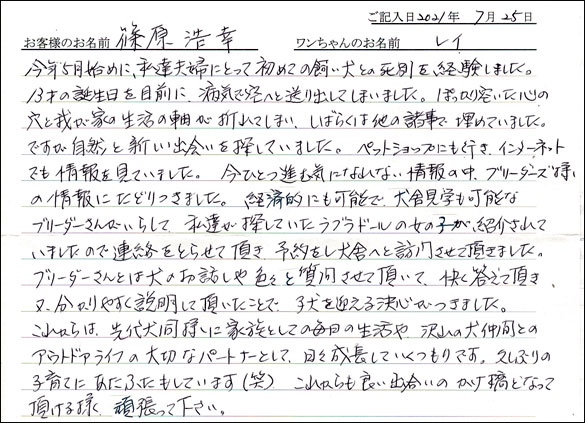 ご記入日2021年 7月25日
お客様のお名前 篠原 浩幸 ワンちゃんのお名前 レイ
今年5月始めに、私達夫婦にとって初めての飼い犬との死別を経験しました。
13才の誕生日を目前に、病気で空へと送り出してしまいました。ぽっかり空いた心の
穴と我が家の生活の軸が折れてしまい、しばらくは他の諸事で埋めていました。
ですが自然と新しい出会いを探していました。ペットショップにも行き、インターネット
でも情報を見ていました。今ひとつ進む気になれない情報の中、ブリーダーズ様
の情報にたどりつきました。経済的にも可能で、犬舎見学も可能な
ブリーダーさんがいらして、私達が探していたラブラドールの女の子が、紹介されて
いましたので連絡をとらせて頂き、予約をし犬舎へと訪問させて頂きました。
ブリーダーさんとは犬のお話しや色々と質問させて頂いて、快く答えて頂き、
又、分かりやすく説明して頂いたことで、子犬を迎える決心がつきました。
これからは、先代犬同様に家族としての毎日の生活や、沢山の犬仲間との
アウトドアライフの大切なパートナーとして、日々成長していくつもりです。久しぶりの
子育てにあたふたもしています(笑) これからも良い出会いのかけ橋となって
頂ける様、頑張って下さい。